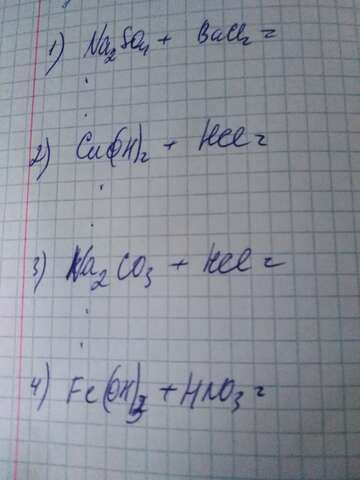 1) Na₂SO₄ + BaCl₂ =
2) Cu(OH)₂ + HCl =
3) Na₂CO₃ + HCl =
4) Fe(OH)₃ + HNO₃ =